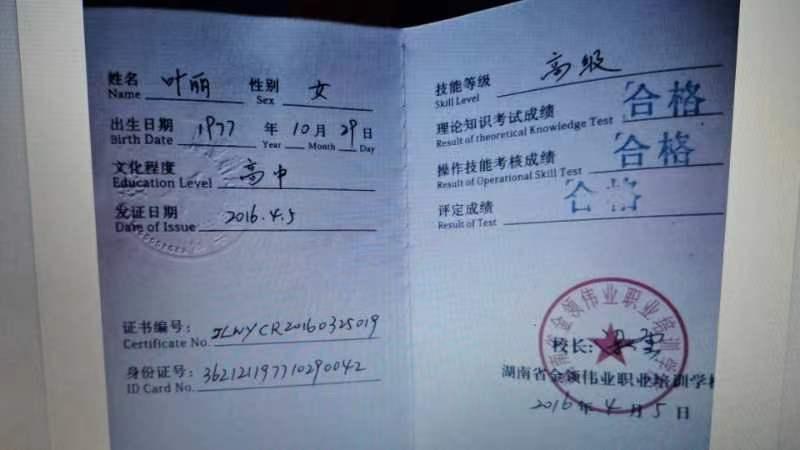 姓名 叶丽 性别 女
Name Sex
出生日期 1977 年 10 月 29 日
Birth Date Year Month Day
文化程度 高中
Education Level
发证日期 2016.4.5
Date of Issue
证书编号: JLNYCR20160325019
Certificate No.
身份证号: 362121197710290042
ID Card No.
技能等级 高级
Skill Level
理论知识考试成绩 合格
Result of theoretical Knowledge Test
操作技能考核成绩 合格
Result of Operational Skill Test
评定成绩 合格
Result of Test
南省金领伟业职业培训学
校长:
湖南省金领伟业职业培训学校
2016 年 4 月 5 日